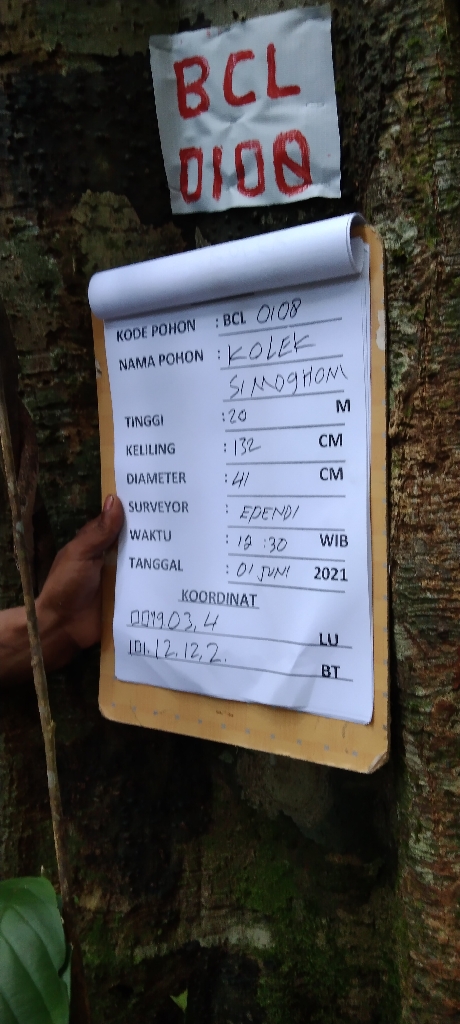 BCL
0100
KODE POHON : BCL 0108
NAMA POHON : KOLEK
SIMOGHOM
TINGGI : 20 M
KELILING : 132 CM
DIAMETER : 41 CM
SURVEYOR : EPENDI
WAKTU : 12 : 30 WIB
TANGGAL : 01 JUNI 2021
KOORDINAT
0019.03,4 LU
101.12.12,2. BT